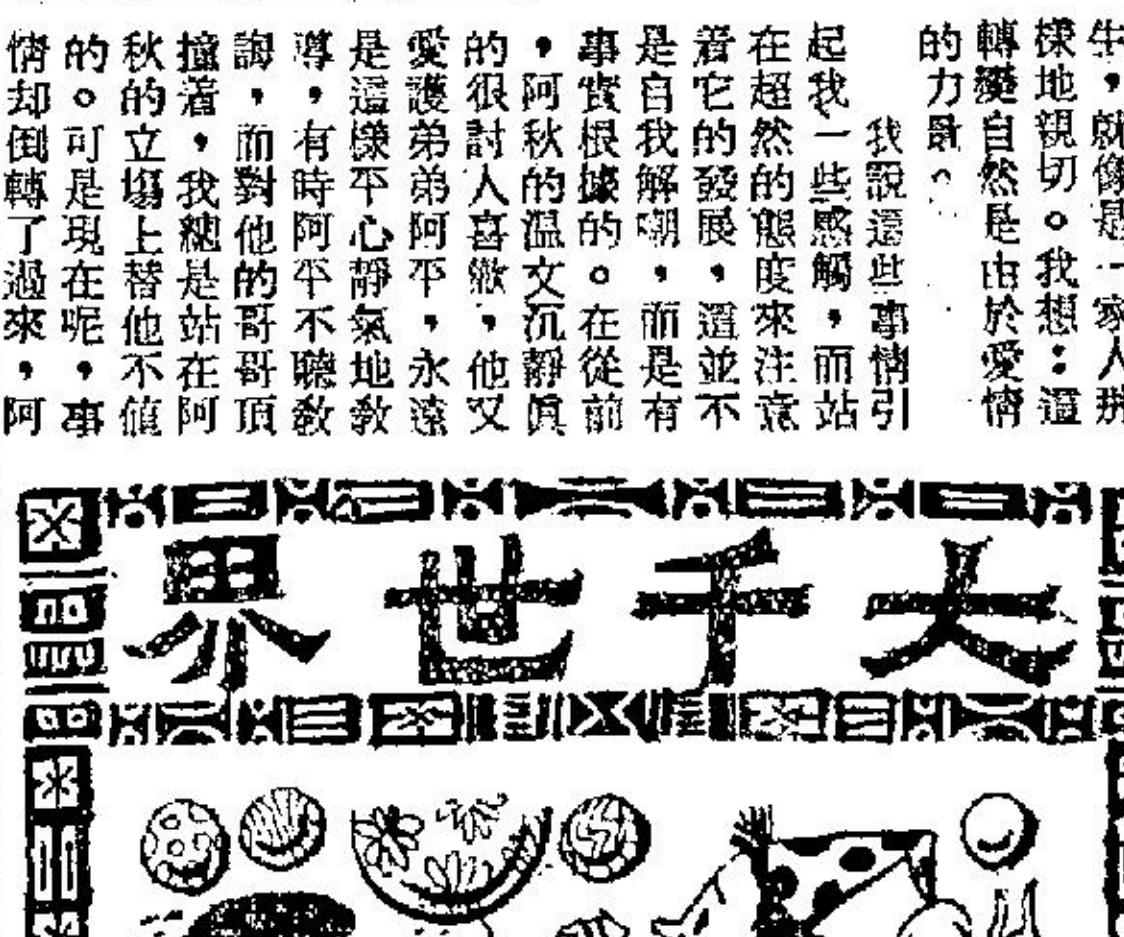 ，就像是一家人
樣地親切。我想：這
轉變自然是由於愛情
的力量。
我說這些事情引
起我一些感觸，而站
在超然的態度來注意
着它的發展，這並不
是自我解嘲，而是有
事實根據的。在從前
，阿秋的溫文沉靜眞
的很討人喜歡，他又
愛護弟弟阿平，永遠
是這樣平心靜氣地敎
導，有時阿平不聽敎
誨，而對他的哥哥頂
撞着，我總是站在阿
秋的立塲上替他不值
的。可是現在呢，事
情却倒轉了過來，阿
大千世界